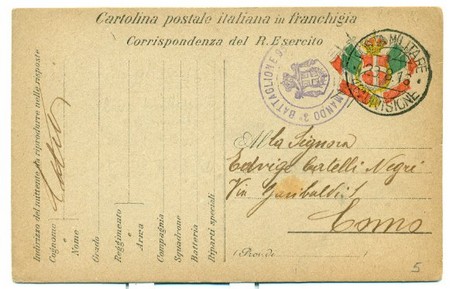 Cartolina postale italiana in franchigia
Corrispondenza del R. Esercito
POSTA MILITARE
DIVISIONE
COMANDO 3° BATTAGLIONE
Alla Signora
Edvige Catelli Negri
Via Garibaldi 1
Como
(Prov. di
Indirizzo del mittente da riprodurre nelle risposte
Cognome e Nome
Grado
Reggimento o Arma
Compagnia
Squadrone
Batteria
Riparti speciali
5